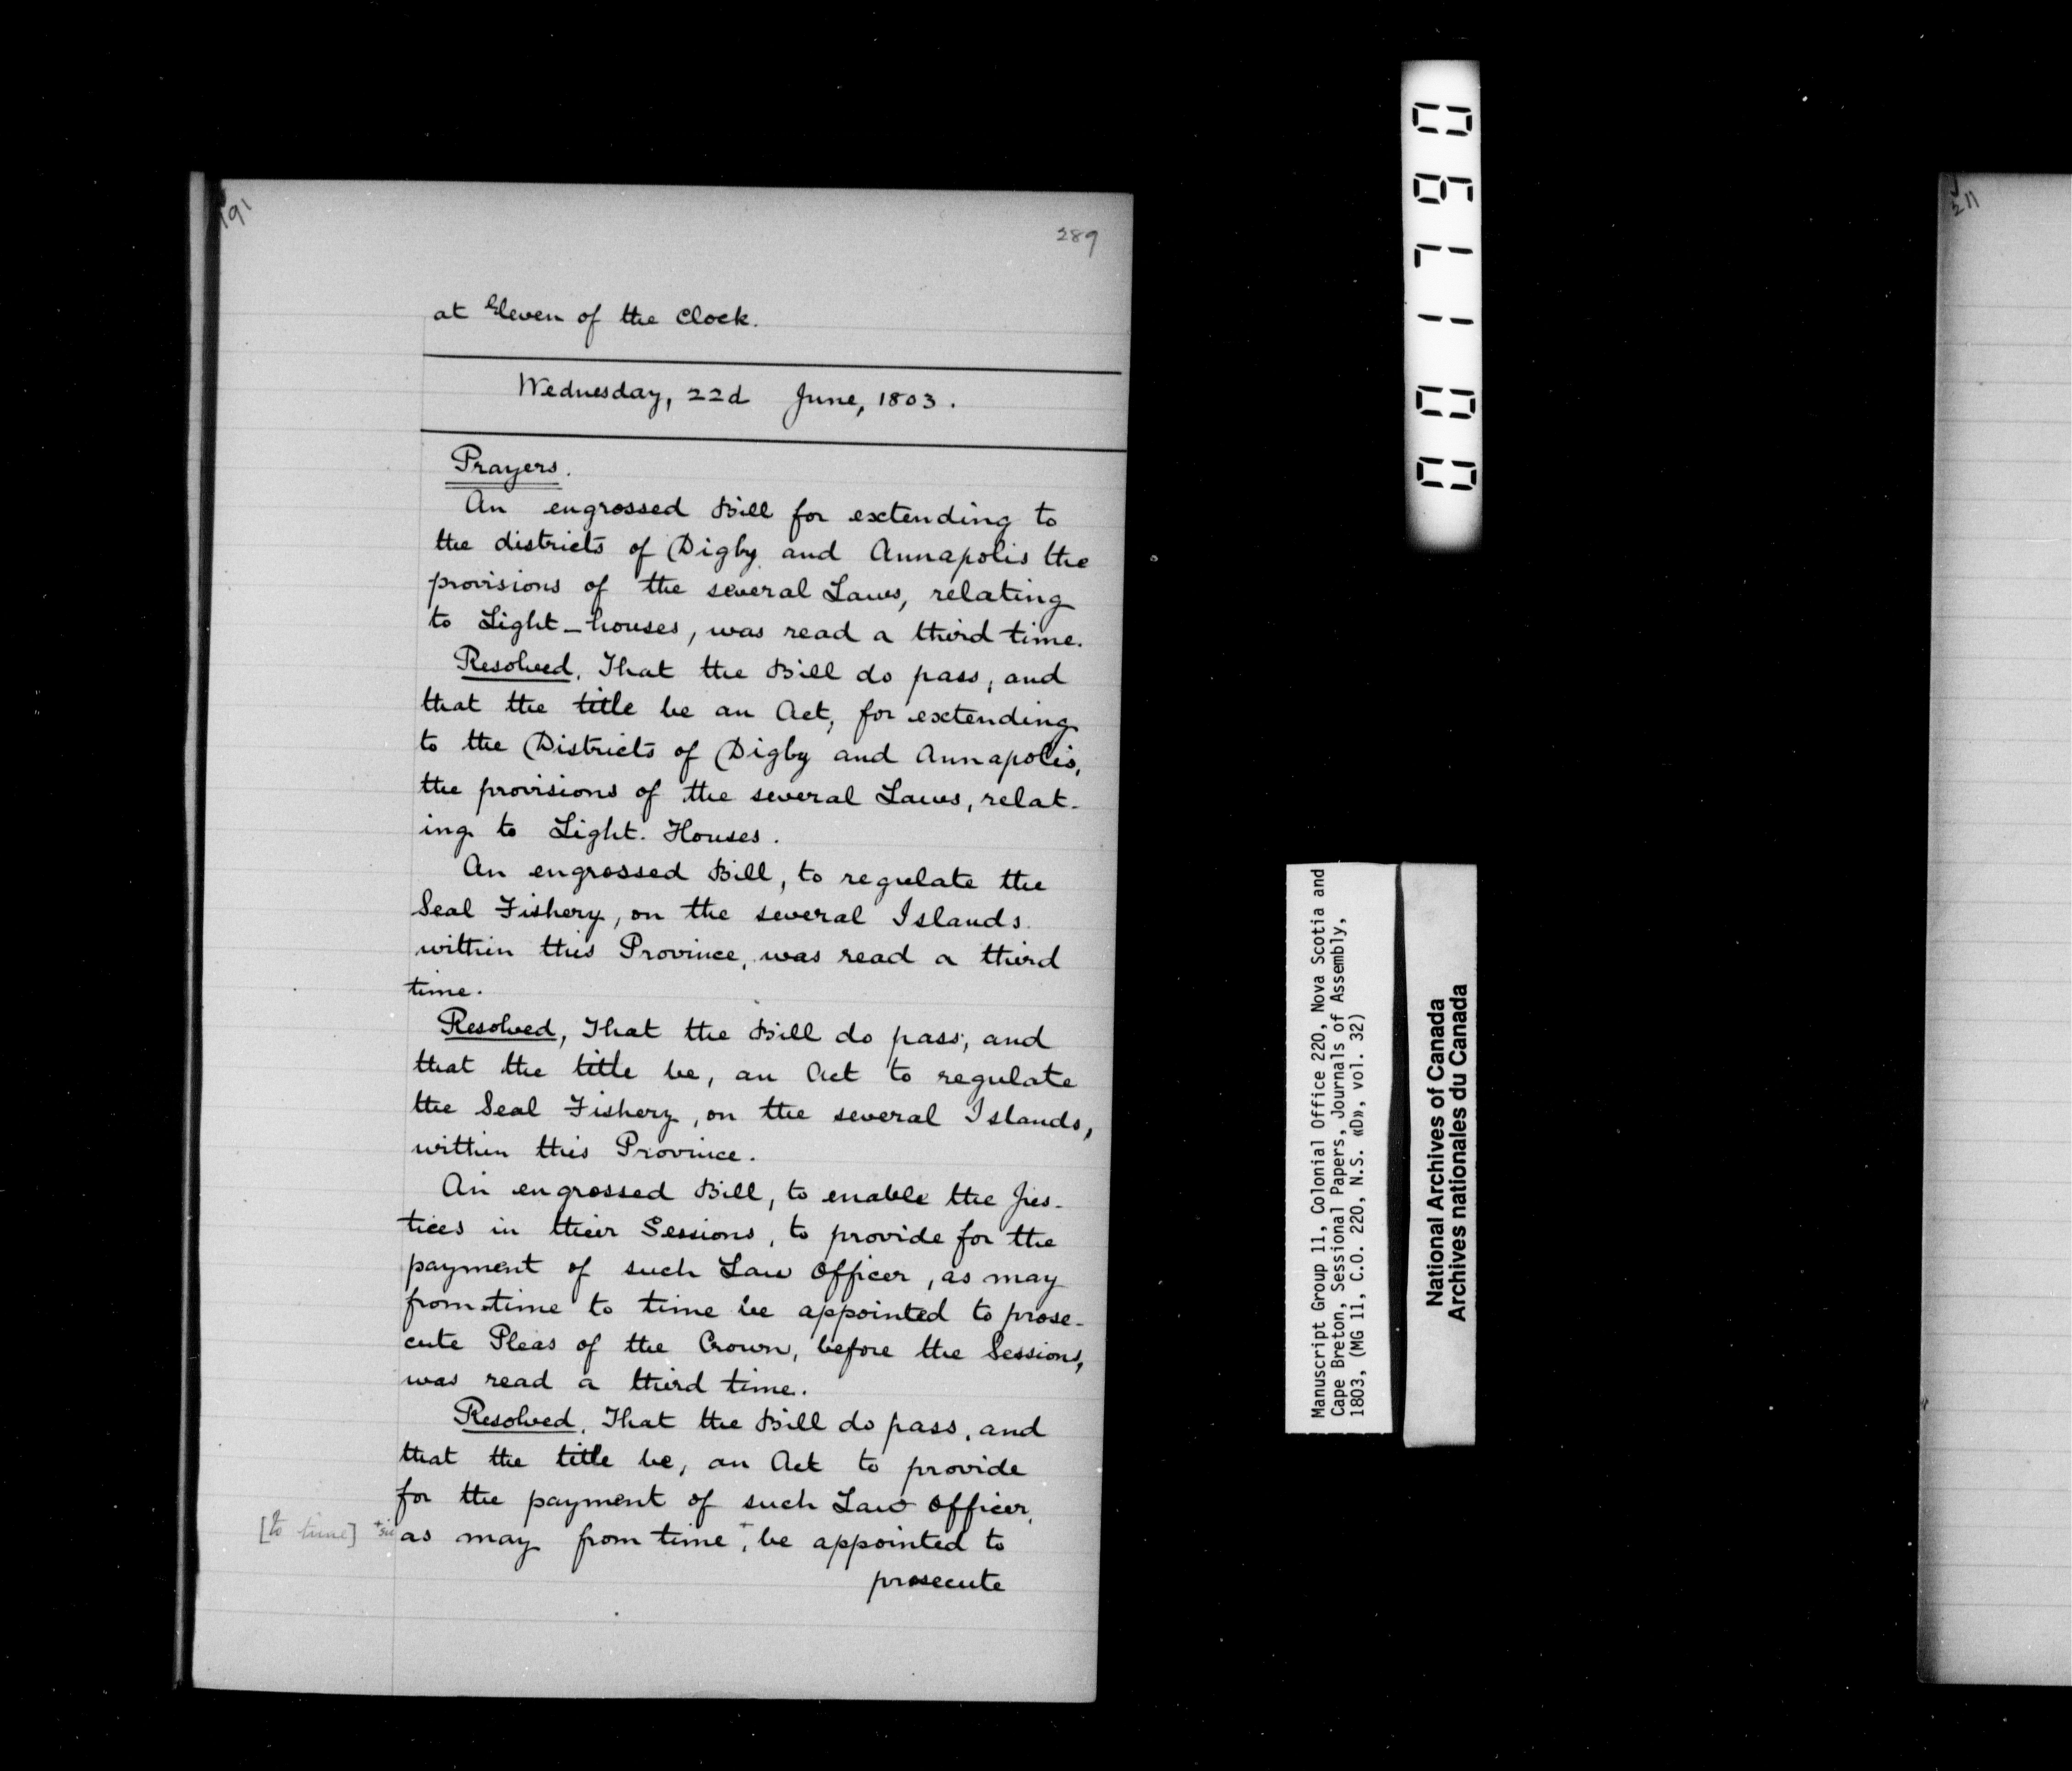 191
289
at Eleven of the Clock.
Wednesday, 22d June, 1803.
Prayers.
An engrossed Bill for extending to
the districts of Digby and Annapolis the
provisions of the several Laws, relating
to Light-houses, was read a third time.
Resolved, That the Bill do pass, and
that the title be an Act, for extending
to the Districts of Digby and Annapolis,
the provisions of the several Laws, relat-
ing to Light-Houses.
An engrossed Bill, to regulate the
Seal Fishery, on the several Islands
within this Province, was read a third
time.
Resolved, That the Bill do pass, and
that the title be, an Act to regulate
the Seal Fishery, on the several Islands,
within this Province.
An engrossed Bill, to enable the Jus-
tices in their Sessions, to provide for the
payment of such Law Officer, as may
from time to time be appointed to prose-
cute Pleas of the Crown, before the Sessions,
was read a third time.
Resolved, That the Bill do pass, and
that the title be, an Act to provide
for the payment of such Law Officer,
[to time] +sic as may from time +, be appointed to
prosecute
001790
Manuscript Group 11, Colonial Office 220, Nova Scotia and
Cape Breton, Sessional Papers, Journals of Assembly,
1803, (MG 11, C.O. 220, N.S. «D», vol. 32)
National Archives of Canada
Archives nationales du Canada
211